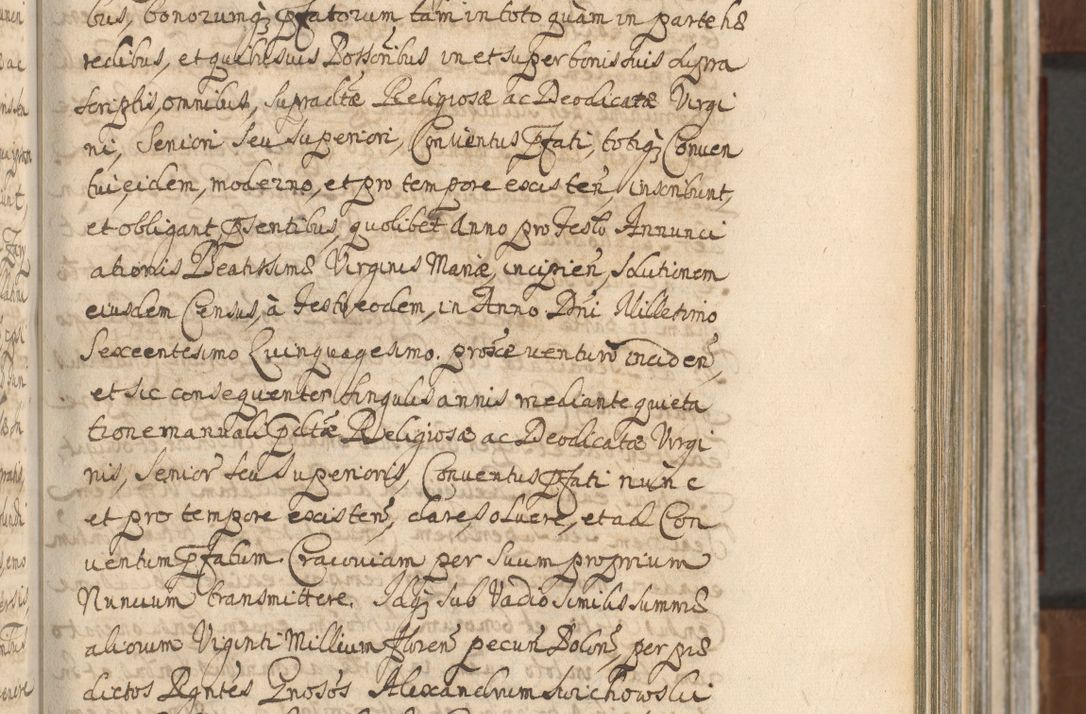 bus, bonorumq₃ pfatorum tàm in toto quàm in parte hæ
redibus, et quibusuis Possoribus in et super bonis suis supra
scriptis, omnibus, supradtæ Religiosæ ac Deodicatæ Virgi
ni, Seniori seu Superiori, Conuentus pfati, totiq₃ Conuen
tui, eidem, moderno, et pro tempore existen, inscribunt,
et obligant psentibus, quolibet Anno pro festo Annunci
ationis Beatissimæ Virginis Mariæ, incipien, solutionem
eiusdem Census, à festo eodem, in Anno Dni Millesimo
Sexcentesimo Quinquagesimo. proxe venturo inciden,
et sic consequenter singulis annis mediante quieta
tione manuali pdtæ Religiosæ ac Deodicatæ Virgi
nis, Senior seu Superioris, Conuentus pfati nunc
et pro tempore existen, dare, soluere, et ad Con
uentum pfatum Cracouiam per suum proprium
Nuncium transmittere. Idq₃ sub Vadio similis summæ
aliorum Viginti Millium floren pecun Polon, per præ
dictos Rgntes Gnosos Alexandrum Swichowski